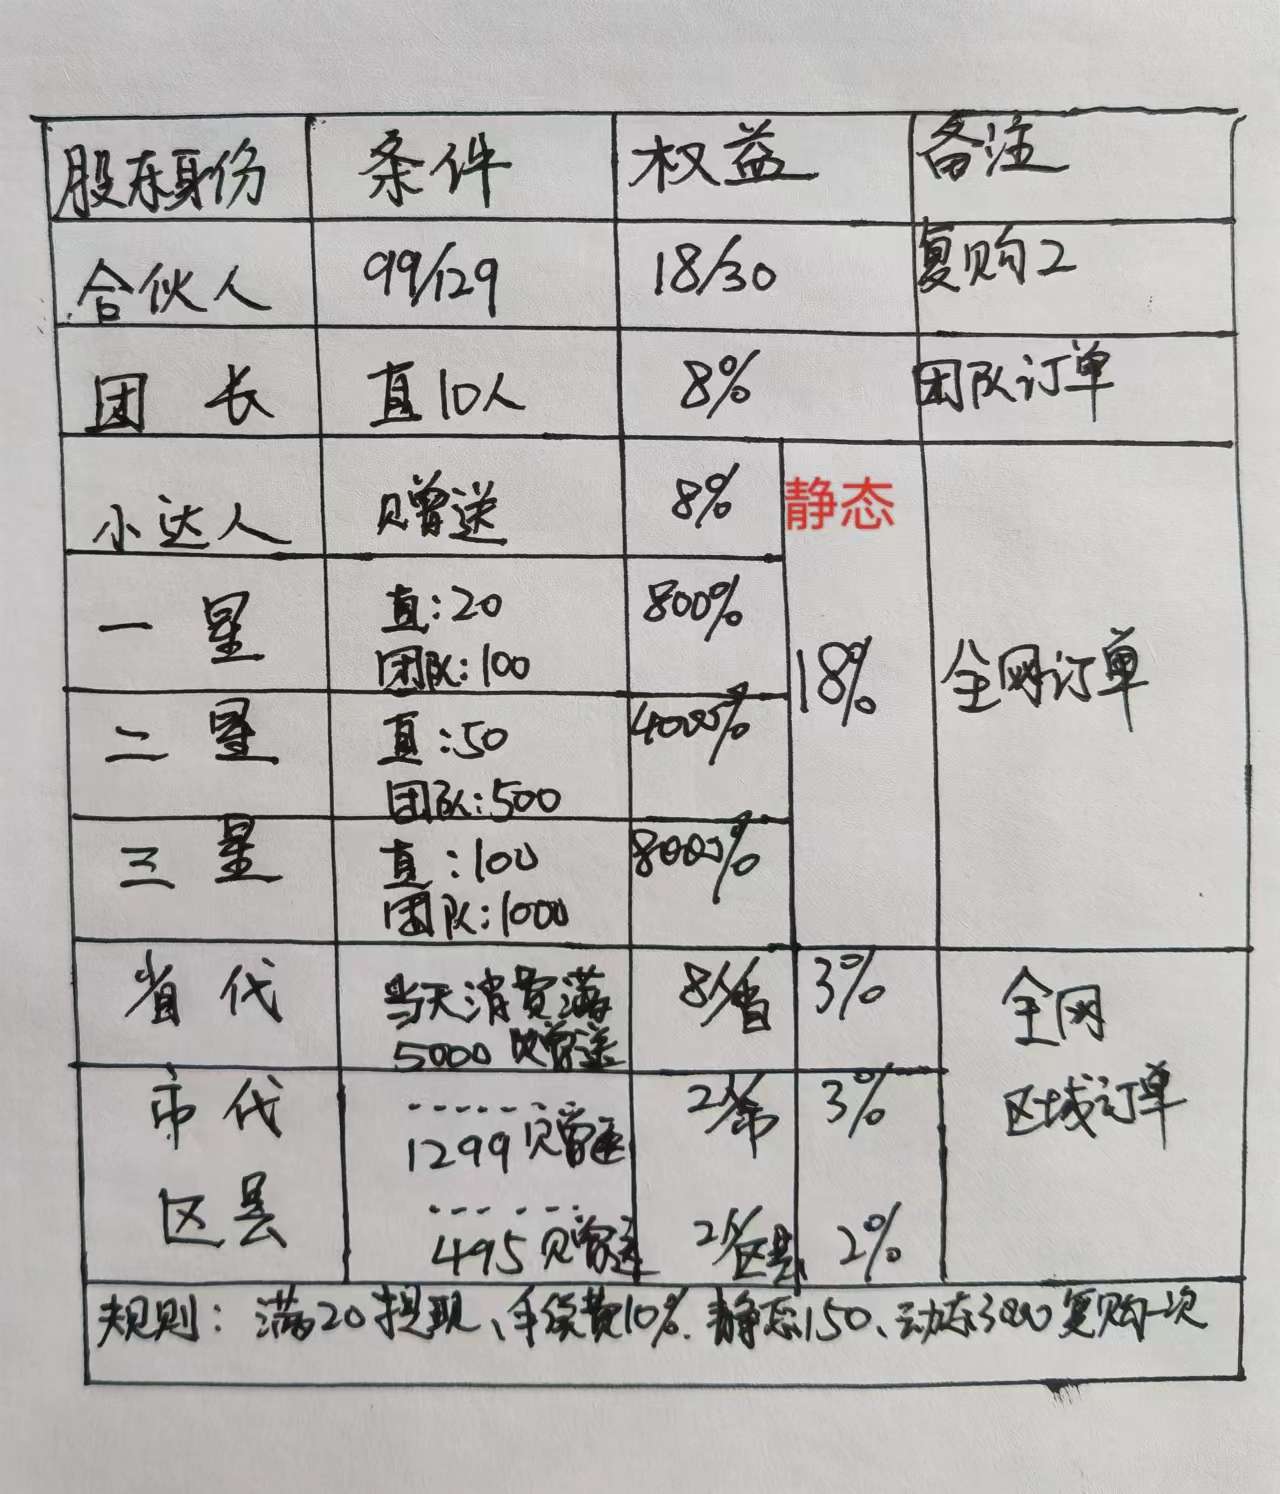 股东身份 条件 权益 备注
合伙人 99/129 18/30 复购2
团长 直10人 8% 团队订单
小达人 赠送 8% 静态
一星 直:20 800%
团队:100
18% 全网订单
二星 直:50 4000%
团队:500
三星 直:100 8000%
团队:1000
省代 当天消费满 8/省 3% 全网
5000赠送
市代 1299赠送 2/市 3% 区域订单
区县 495赠送 2/区县 2%
规则:满20提现、手续费10%.静态150、动态3800复购一次